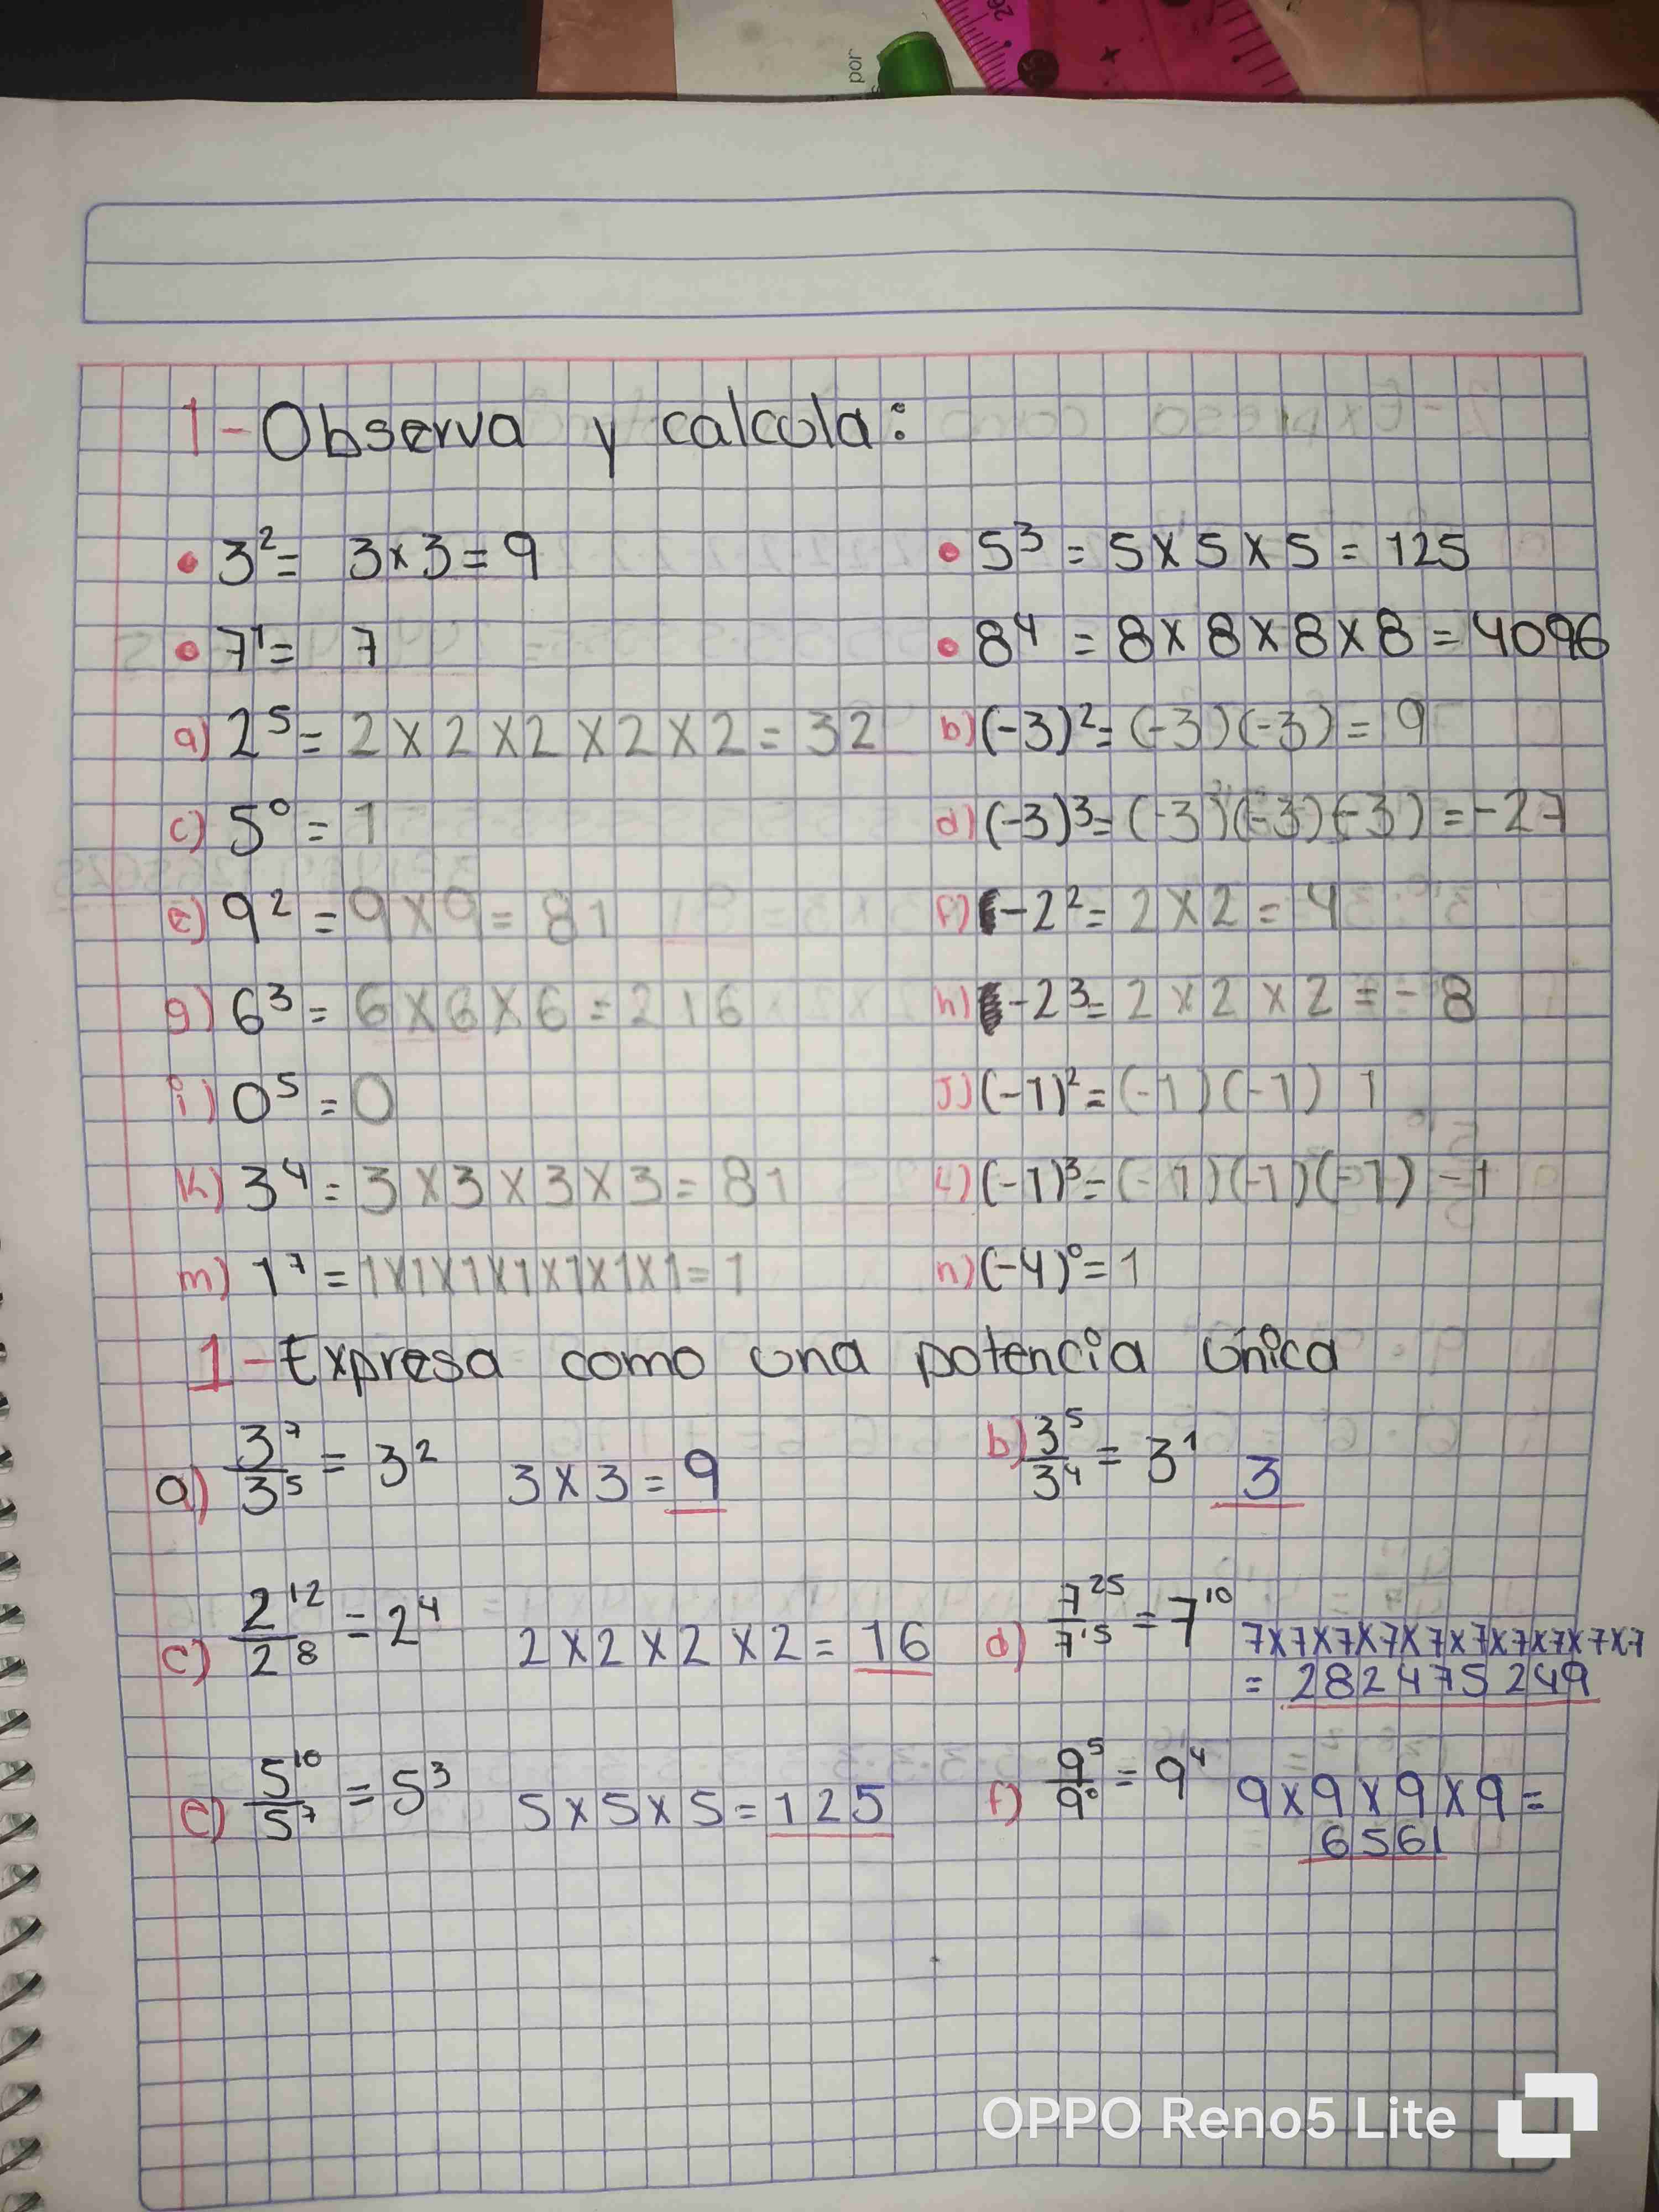 por
1-Observa y calcola:
• 3² = 3×3=9 • 5³ = 5×5×5 = 125
• 7¹= 7 • 8⁴ = 8×8×8×8 = 4096
a) 2⁵ = 2×2×2×2×2 = 32 b) (-3)²= (-3)(-3) = 9
c) 5⁰ = 1 d) (-3)³= (-3)(-3)(-3) = -27
e) 9² = 9×9 = 81 f) -2²= 2×2 = 4
g) 6³ = 6×6×6 = 216 h) -2³= 2×2×2 = -8
i) 0⁵ = 0 J) (-1)²= (-1)(-1) 1
k) 3⁴ = 3×3×3×3 = 81 L) (-1)³= (-1)(-1)(-1) -1
m) 1⁷ = 1×1×1×1×1×1×1 = 1 n) (-4)⁰= 1
1-Expresa como una potencia única
a) 3⁷/3⁵ = 3² 3×3 = 9 b) 3⁵/3⁴ = 3¹ 3
c) 2¹²/2⁸ = 2⁴ 2×2×2×2 = 16 d) 7²⁵/7¹⁵ = 7¹⁰ 7×7×7×7×7×7×7×7×7×7
= 282475249
e) 5¹⁰/5⁷ = 5³ 5×5×5 = 125 f) 9⁵/9⁰ = 9⁴ 9×9×9×9 =
6561
OPPO Reno5 Lite